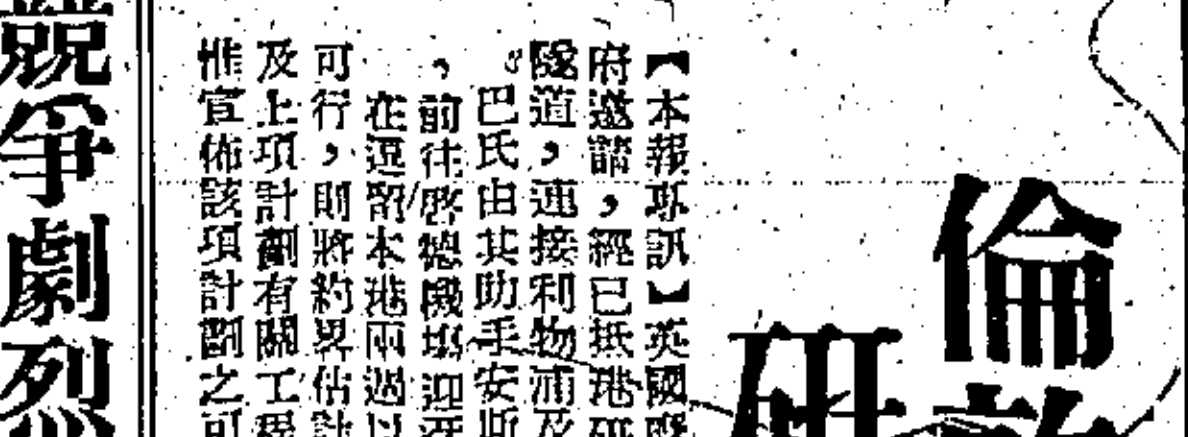 倫敦
研
【本報專訊】英國隧
府邀請，經已抵港研
隧道，連接利物浦及
。巴氏由其助手安斯
，前往啓德機塲迎迓
在逗留本港兩週以
可行，則將約畧估計
及上項計劃有關工程
惟宣佈該項計劃之可
競爭劇烈